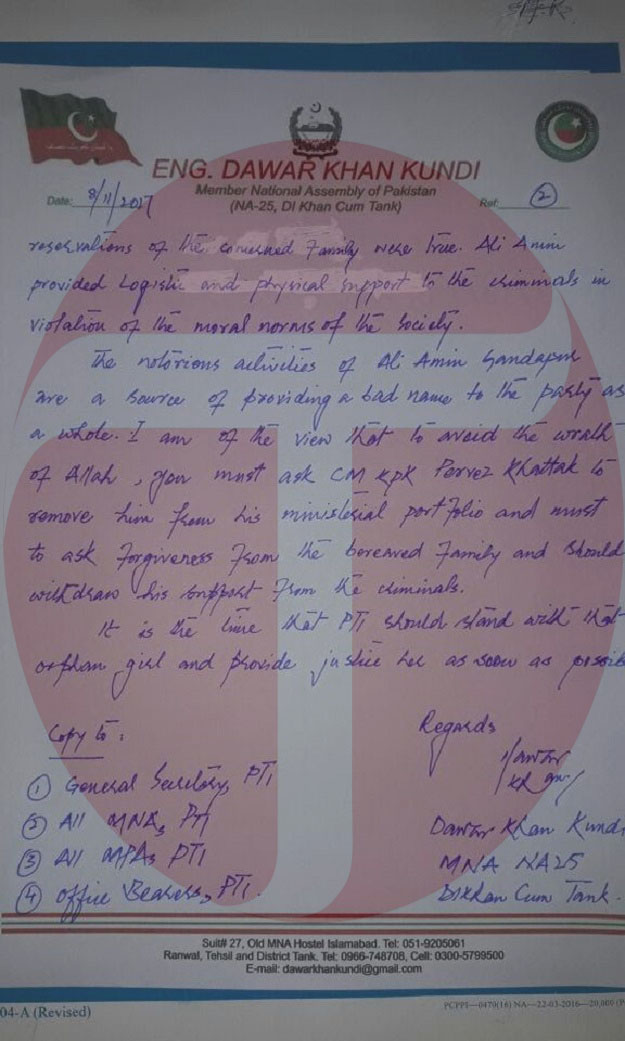 ENG. DAWAR KHAN KUNDI
Member National Assembly of Pakistan
(NA-25, DI Khan Cum Tank)
Date: 8/11/2017 Ref: 2
reservations of the concerned Family were true. Ali Amin
provided Logistic and physical support to the criminals in
violation of the moral norms of the society.
The notorious activities of Ali Amin Gandapur
are a source of providing a bad name to the party as
a whole. I am of the view that to avoid the wrath
of Allah, you must ask CM KPK Pervez Khattak to
remove him from his ministerial portfolio and must
to ask Forgiveness From the bereaved Family and should
withdraw his support From the criminals.
It is the time that PTI should stand with that
orphan girl and provide justice her as soon as possib
Copy to: Regards
① General Secretary, PTI
② All MNAs, PTI Dawar Khan Kundi
③ All MPAs PTI MNA NA25
④ office Bearers, PTI. DIKhan Cum Tank.
Suit# 27, Old MNA Hostel Islamabad. Tel: 051-9205061
Ranwal, Tehsil and District Tank. Tel: 0966-748708, Cell: 0300-5799500
E-mail: dawarkhankundi@gmail.com
04-A (Revised) PCPPI—0479(16) NA—22-03-2016—20,000 (P